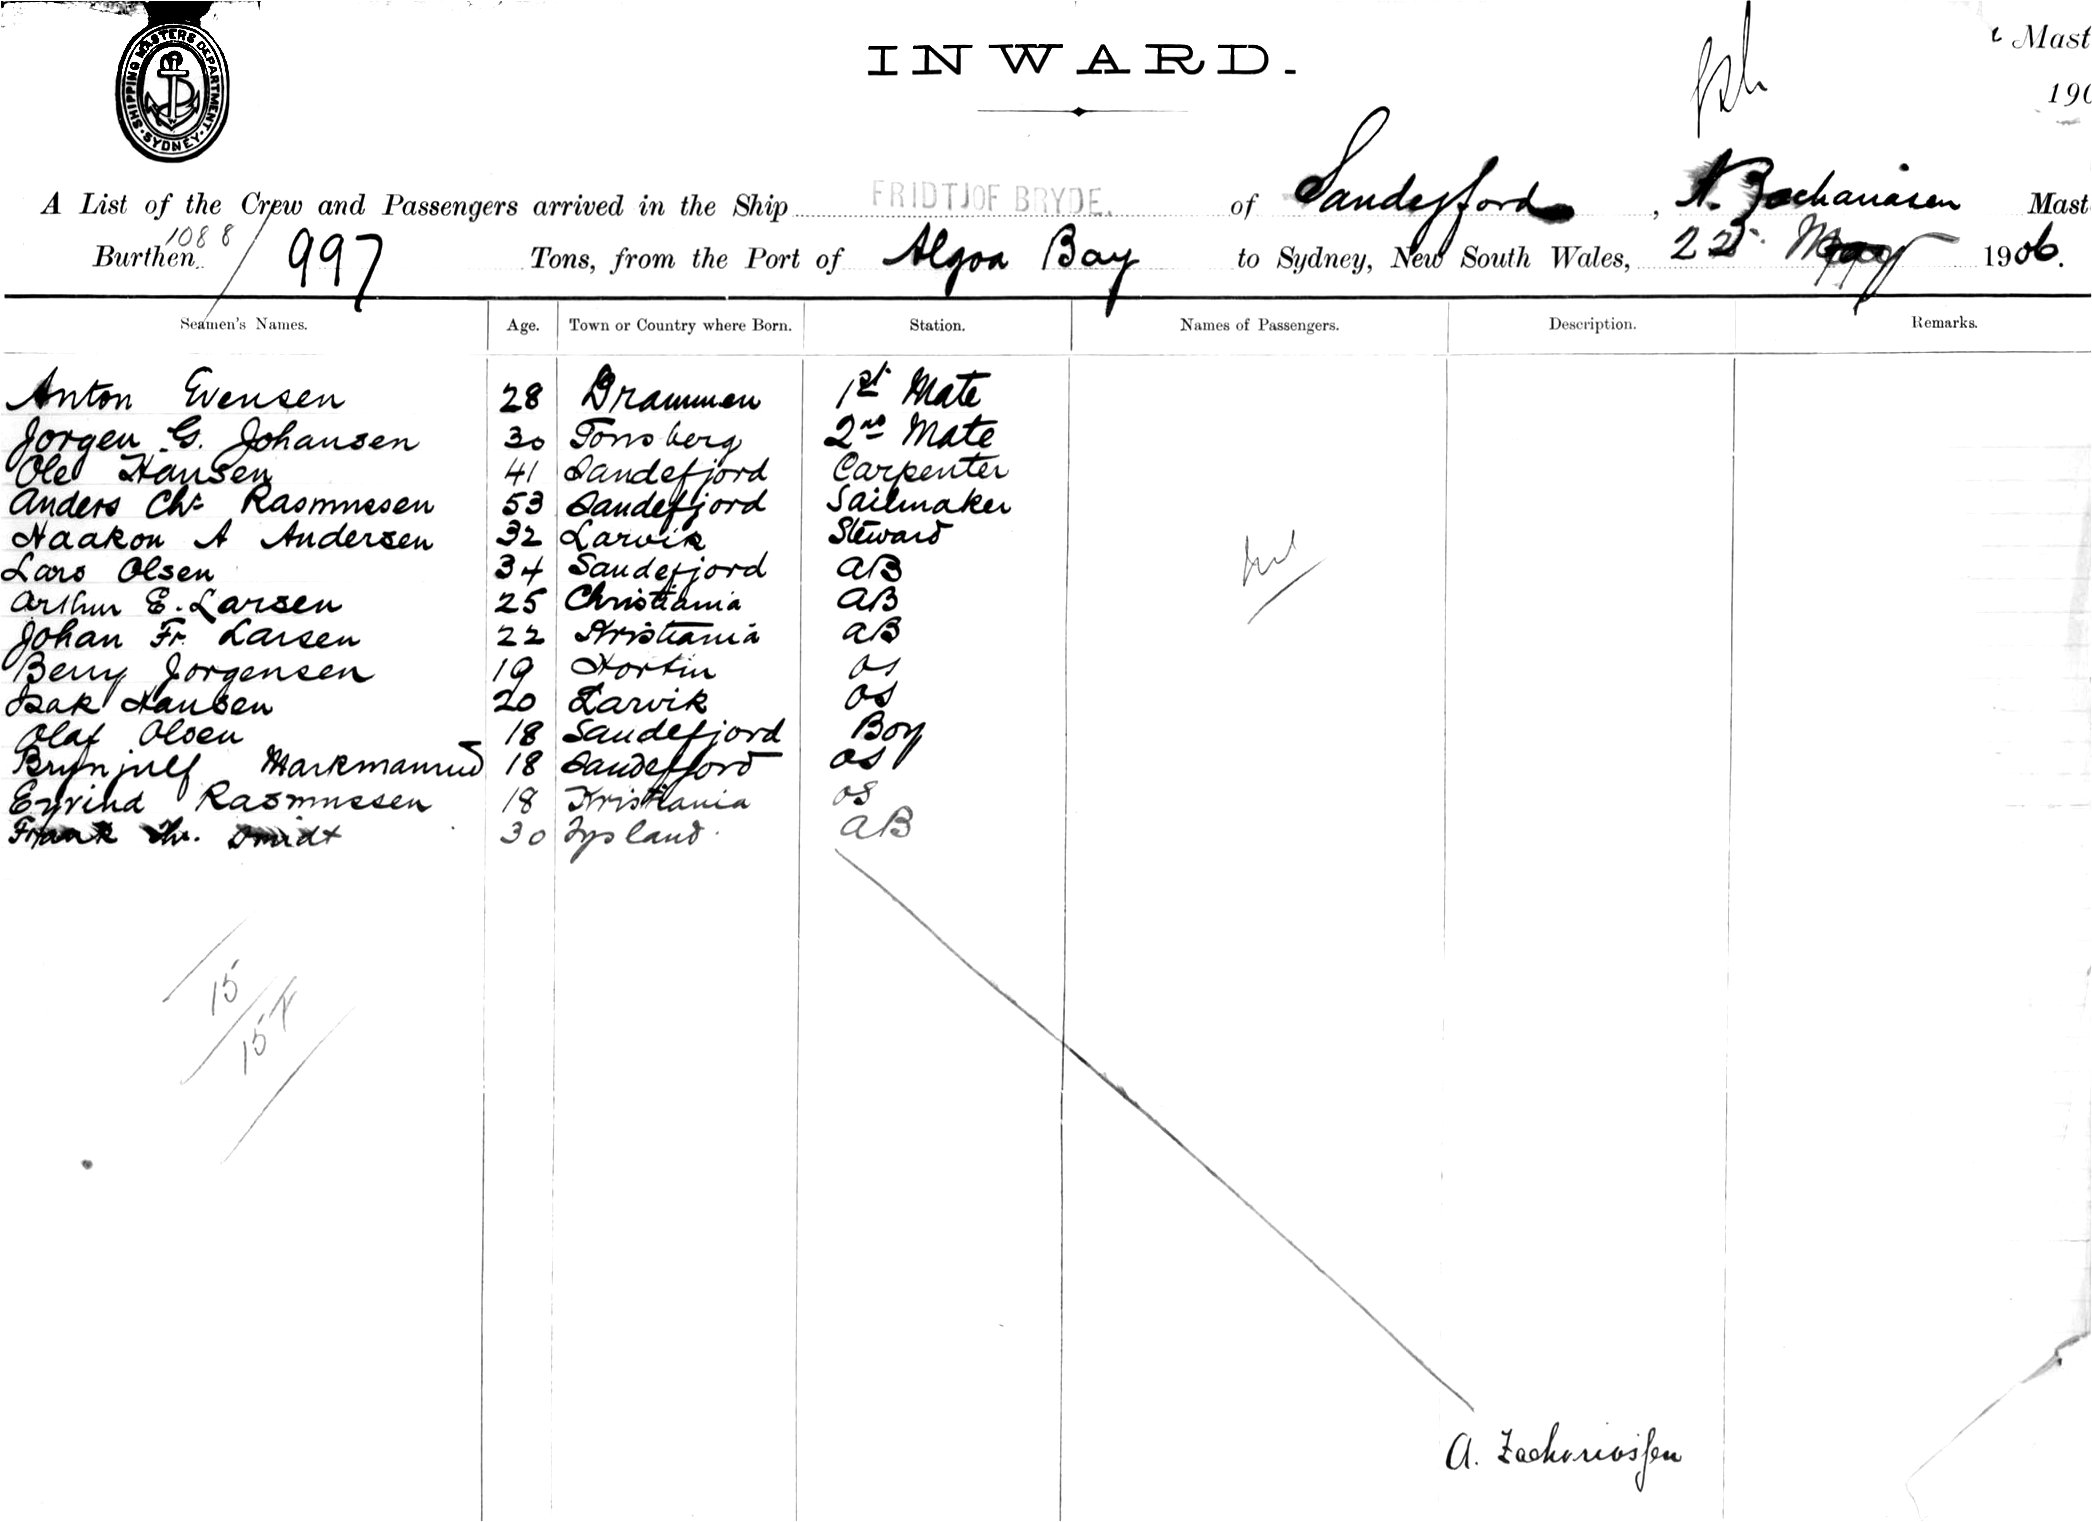 SHIPPING MASTERS DEPARTMENT
SYDNEY
INWARD.
Mast
190
A List of the Crew and Passengers arrived in the Ship FRIDTJOF BRYDE. of Sandefjord, A. Zachariasen Mast
Burthen 1088 / 997 Tons, from the Port of Algoa Bay to Sydney, New South Wales, 22 May 1906.
Seamen's Names. Age. Town or Country where Born. Station. Names of Passengers. Description. Remarks.
Anton Evensen 28 Drammen 1st Mate
Jorgen G. Johansen 30 Tonsberg 2nd Mate
Ole Hansen 41 Sandefjord Carpenter
Anders Chr Rasmussen 53 Sandefjord Sailmaker
Haakon A Andersen 32 Larvik Steward
Lars Olsen 34 Sandefjord AB
Arthur E. Larsen 25 Christiania AB
Johan Fr. Larsen 22 Kristiania AB
Berny Jorgensen 19 Horten OS
Isak Hansen 20 Larvik OS
Olaf Olsen 18 Sandefjord Boy
Brynjulf Markmanrud 18 Sandefjord OS
Eyvind Rasmussen 18 Kristiania OS
Frank Thr. Smidt 30 Tysland AB
nil
15
15
A. Zachariassen